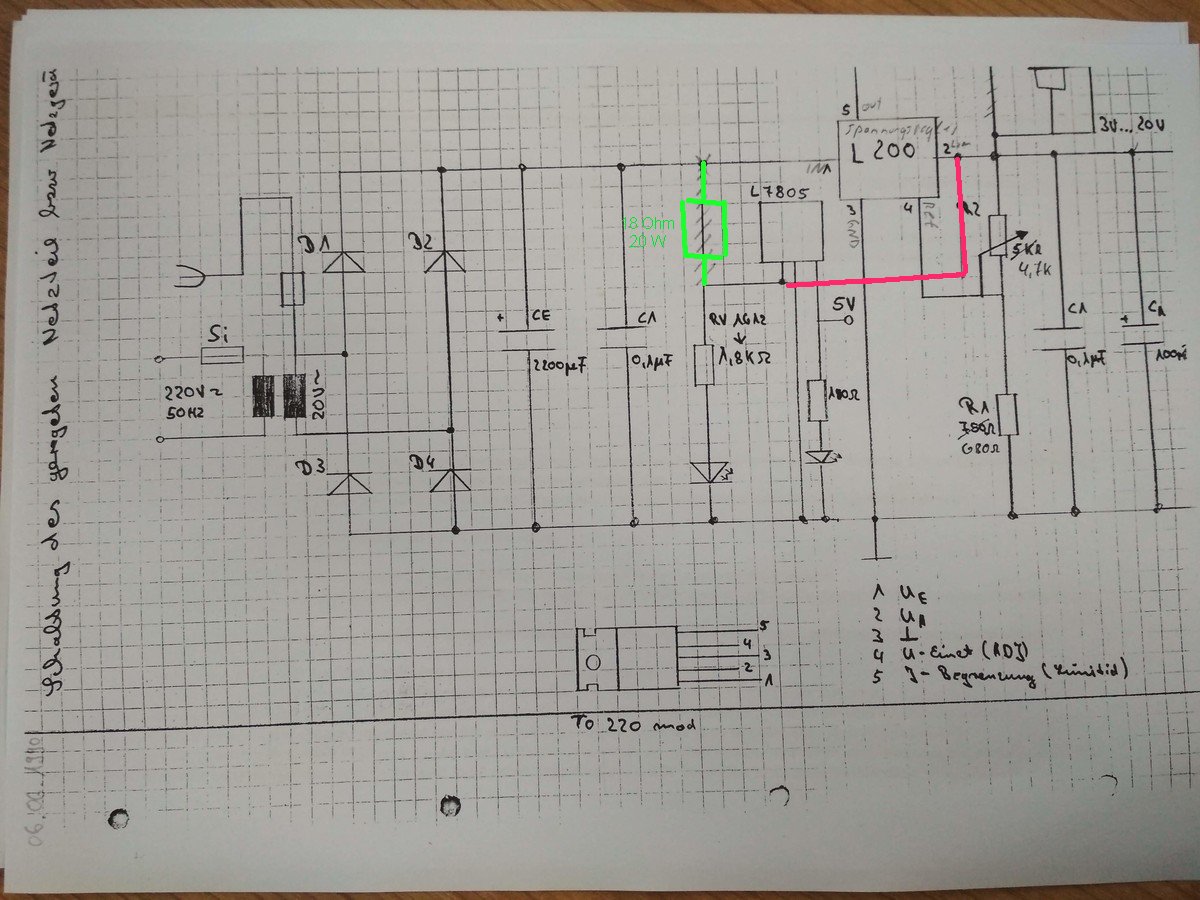 Schaltung des geregelten Netzteil bzw Netzgerä
5 out
Spannungsregl(r)
L 200
IN 1
2 Lim
3 GND
4 REF
3V...20V
L7805
18 Ohm
20 W
R2
5KΩ
4,7K
D1
D2
5V
Si
+ CE
2200µF
C1
0,1µF
1,8KΩ
180Ω
C1
0,1µF
+ CA
100µ
220V~
50HZ
20V~
R1
750Ω
680Ω
D3
D4
1 UE
2 UA
3 ⊥
4 U-Einst (ADJ)
5 J-Begrenzung (Limitid)
5
4
3
2
1
TO 220 mod